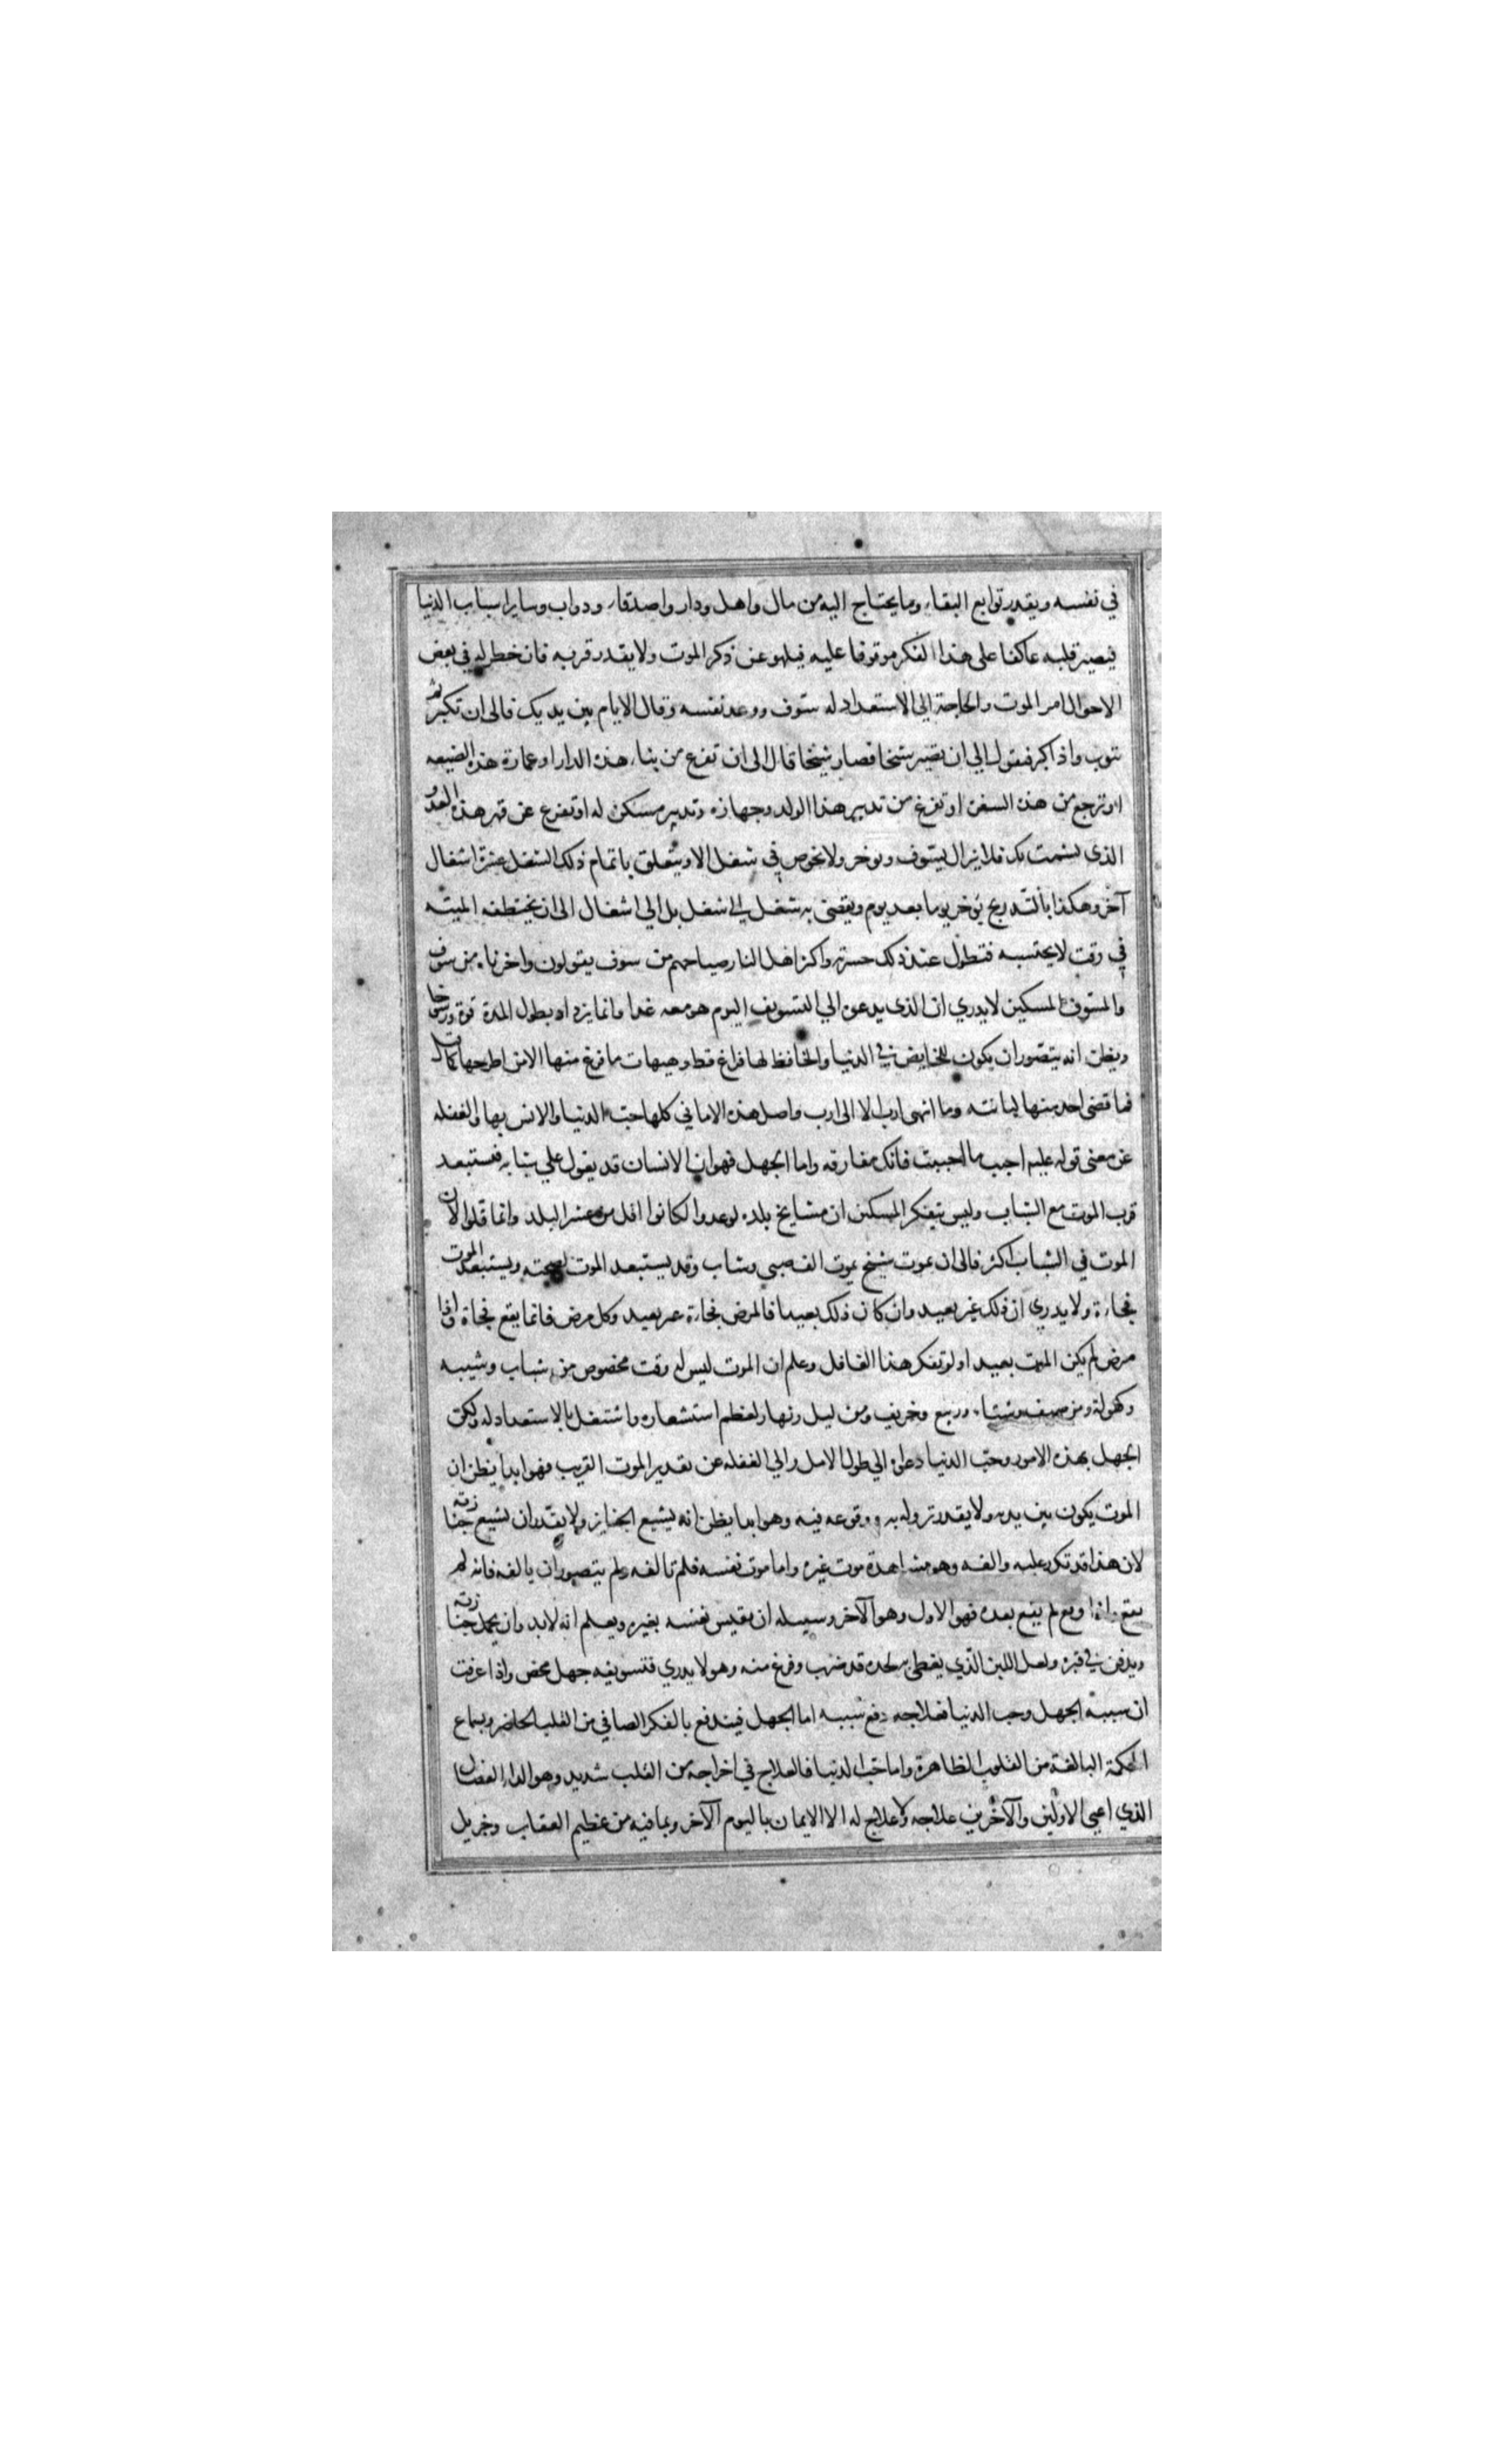 في نفسه ويقدر توابع البقاء وما يحتاج اليه من مال واهل ودار واصدقاء ودواب وساير اسباب الدنيا
فيصير قلبه عاكفا على هذا الفكر موقوفا عليه فيلهو عن ذكر الموت ولا يقدر قربه فان خطر له في بعض
الاحوال امر الموت والحاجة الى الاستعداد له سوف ووعد نفسه وقال الايام بين يديك فالى ان تكبر ثم
تتوب واذا كبر فيقول الي ان تصير شيخا فصار شيخا قال الى ان تفرغ من بناء هذه الدار او عمارة هذه الضيعه
او ترجع من هذه السفر او تفرغ من تدبير هذا الولد وجهازه وتدبير مسكن له او تفرغ عن قهر هذا العدو
الذي يشمت بك فلا يزال يسوف ويوخر ولا يخوص في شغل الا ويتعلق باتمام ذلك الشغل عشرة اشغال
آخر وهكذا بالتدريج يؤخر يوما بعد يوم ويفضى به شغل الى شغل بل الي اشغال الى ان يختطفه المنيته
في وقت لا يحتسبه فتطول عند ذلك حسرته واكثر اهل النار صياحهم من سوف يقولون واحزناه من سوف
والمسوف المسكين لا يدري ان الذى يدعوه الي التسويف اليوم هو معه غدا وانما يزداد بطول المدة قوة ورسوخا
ويظن انه يتصور ان يكون للخايض في الدنيا والحافظ لها فراغ قط وهيهات ما فرغ منها الا من اطرحها كما قال
فما قضى احد منها لبانته وما انهى ارب الا الى ارب واصل هذه الاماني كلها حب الدنيا والانس بها والغفله
عن معنى قوله عليه احبب ما احببت فانك مفارقه واما الجهل فهو ان الانسان قد يعول علي شبابه فيستبعد
قرب الموت مع الشباب وليس يتفكر المسكين ان مشايخ بلده لو عدوا لكانوا اقل من عشر البلد وانما قلوا لان
الموت في الشباب اكثر فالى ان يموت شيخ يموت الف صبي وشاب وقد يستبعد الموت لصحته ويستبعد الموت
فجاءة ولا يدري ان ذلك غير بعيد وان كان ذلك بعيدا فالمرض فجاءة غير بعيد وكل مرض فانما يقع فجاة واذا
مرض لم يكن الموت بعيدا ولو تفكر هذا الغافل وعلم ان الموت ليس له وقت مخصوص من شباب وشيبه
وكهولة ومن صيف وشتاء وربيع وخريف ومن ليل ونهار لعظم استشعاره واشتغل بالاستعداد له ولكن
الجهل بهذه الامور وحب الدنيا دعواه الي طول الامل والي الغفله عن تقدير الموت القريب فهو ابدا يظن ان
الموت يكون بين يديه ولا يقدر نزوله به ووقوعه فيه وهو ابدا يظن انه يشيع الجنايز ولا يقدر ان تشيع جنازته
لان هذا قد تكرر عليه والفه وهو مشاهدة موت غيره واما موت نفسه فلم تالفه ولم يتصور ان يالفه فانه لم
يقع واذا وقع لم يقع بعده فهو الاول وهو الآخر وسبيله ان يقيس نفسه بغيره ويعلم انه لابد وان يحمل جنازته
ويدفن في قبره ولعل اللبن الذي يغطى به لحده قد ضرب وفرغ منه وهو لا يدري فتسويفه جهل محض واذا عرفت
ان سببه الجهل وحب الدنيا فعلاجه دفع سببه اما الجهل فيندفع بالفكر الصافي من القلب الحاضر وسماع
الحكمة البالغة من القلوب الظاهرة واما حب الدنيا فالعلاج في اخراجه من القلب شديد وهو الداء العضال
الذي اعيى الاولين والآخرين علاجه ولا علاج له الا الايمان باليوم الآخر وبما فيه من عظيم العقاب وجزيل